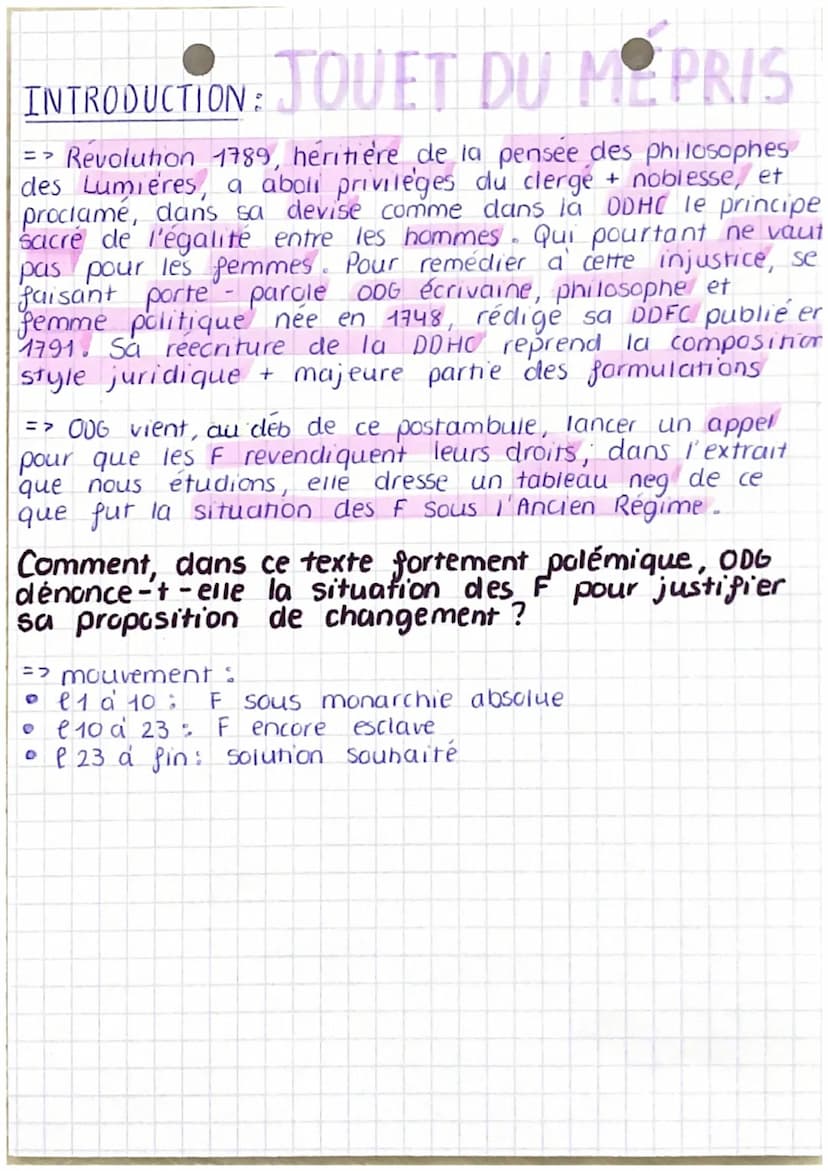 INTRODUCTION : JOUET DU MÉPRIS
=> Révolution 1789, héritière de la pensée des philosophes
des Lumières, a aboli privilèges du clergé + noblesse, et
proclamé, dans sa devise comme dans la DDHC le principe
sacré de l'égalité entre les hommes. Qui pourtant ne vaut
pas pour les femmes. Pour remédier à cette injustice, se
faisant porte-parole ODG écrivaine, philosophe et
femme politique née en 1748, rédige sa DDFC publié en
1791. Sa réécriture de la DDHC reprend la composition
style juridique + majeure partie des formulations
=> ODG vient, au déb de ce postambule, lancer un appel
pour que les F revendiquent leurs droits ; dans l'extrait
que nous étudions, elle dresse un tableau neg de ce
que fut la situation des F sous l'Ancien Régime.
Comment, dans ce texte fortement polémique, ODG
dénonce-t-elle la situation des F pour justifier
sa proposition de changement ?
=> mouvement :
• l1 à 10 : F sous monarchie absolue
• l10 à 23 : F encore esclave
• l23 à fin : solution souhaité